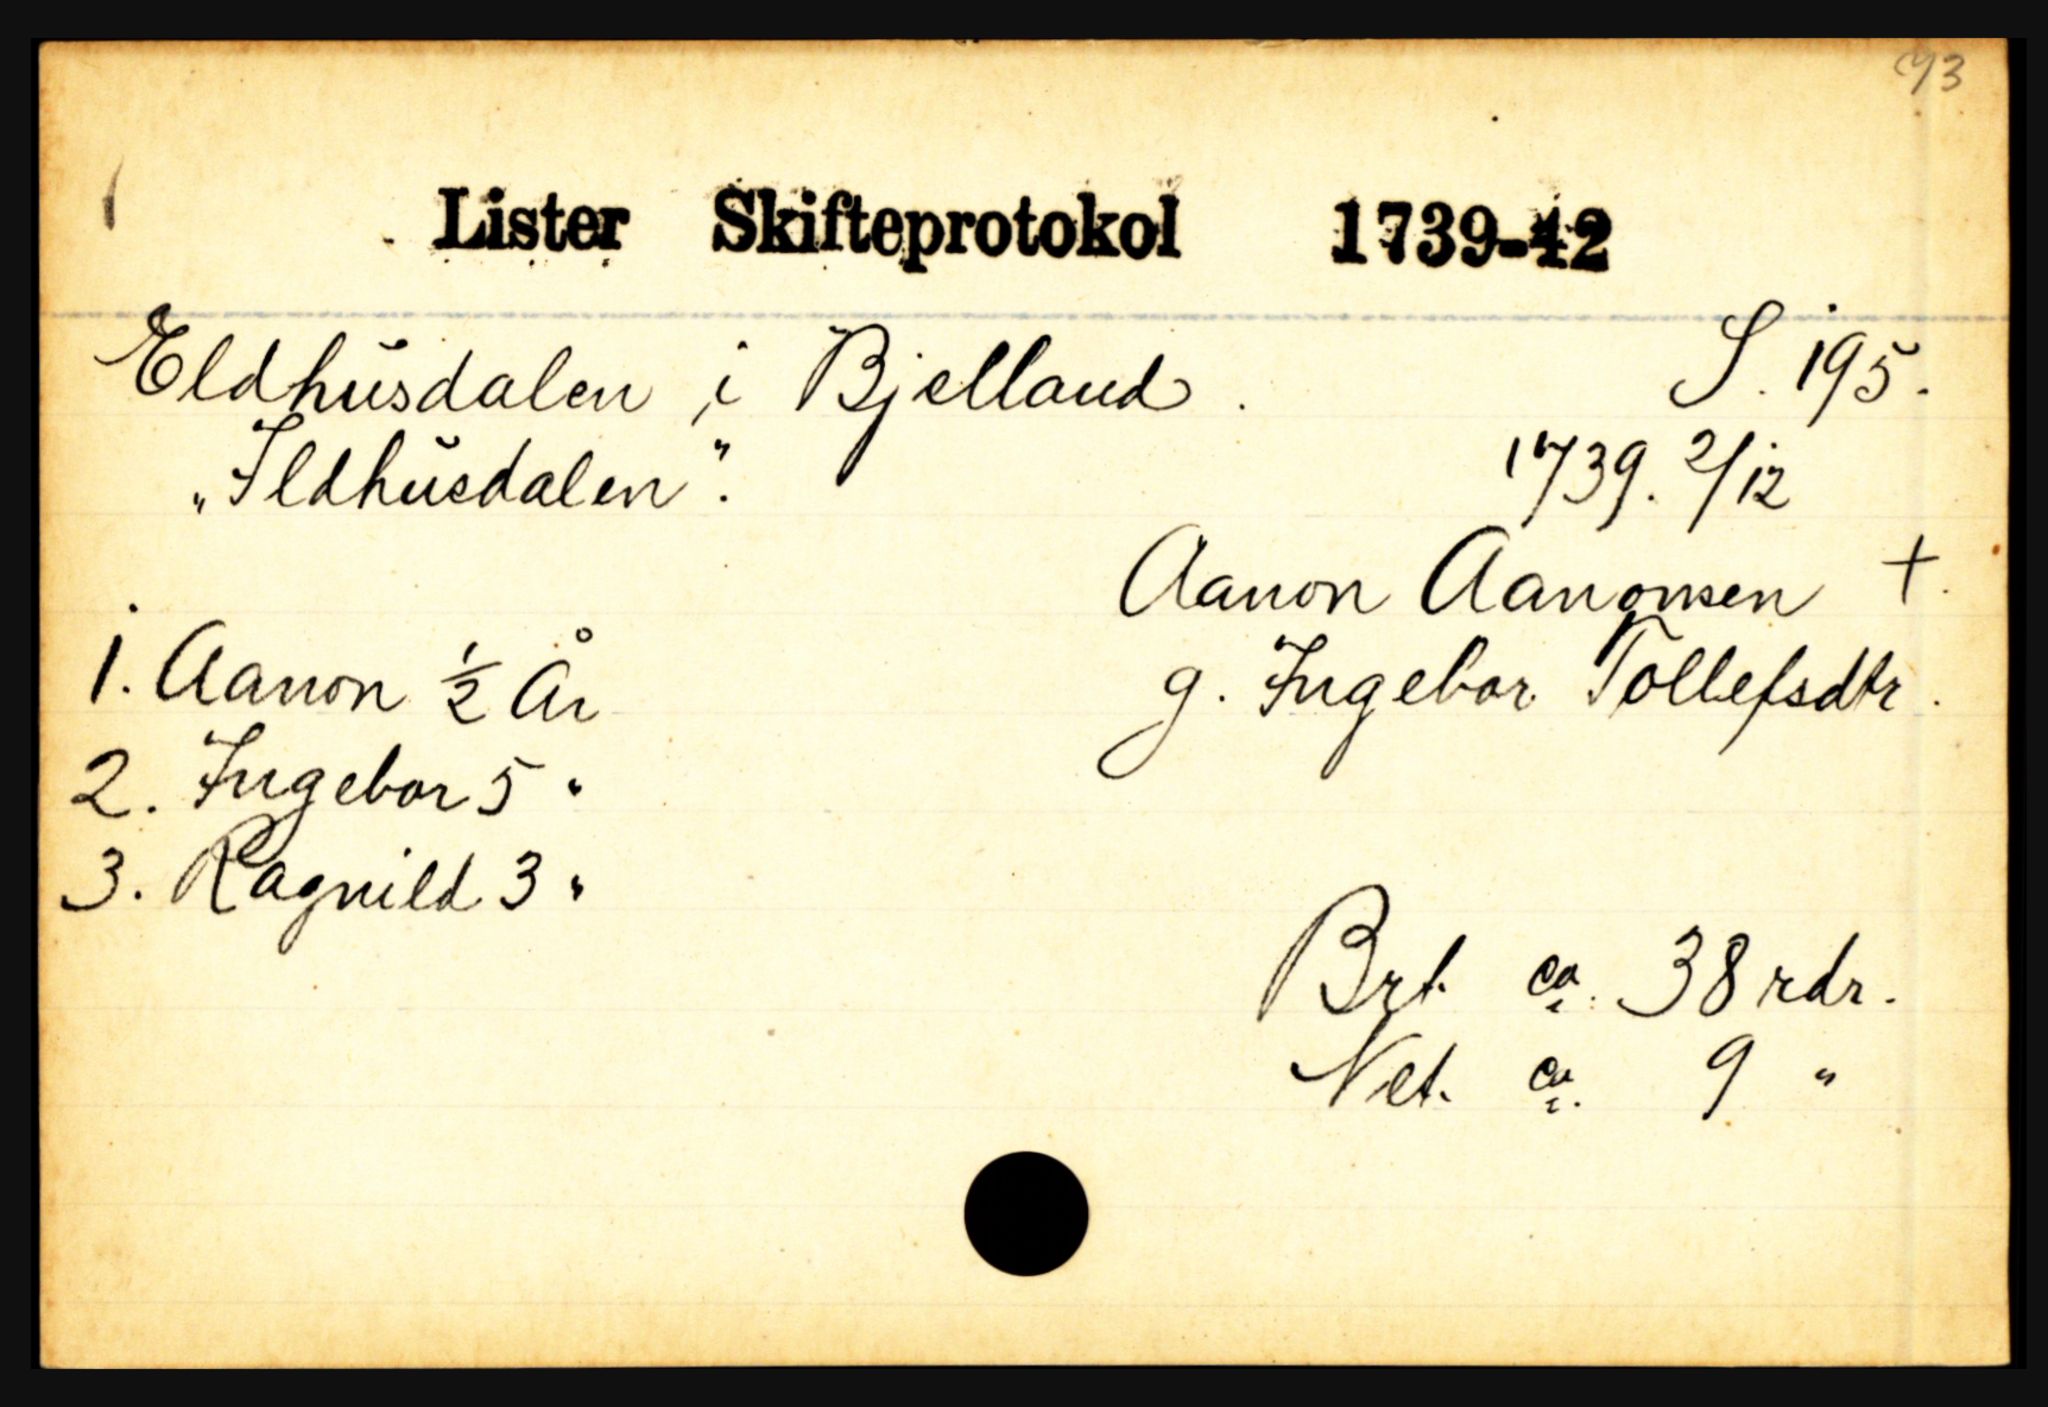 73
Lister Skifteprotokol 1739-42
Eldhusdalen i Bjelland. S. 195.
„Ildhusdalen". 1739. 2/12
Aanon Aanonsen +.
1. Aanon ½ År
g. Ingebor Tollefsdtr.
2. Ingebor 5 "
3. Ragnild 3 "
Brt. ca. 38 rdr.
Net. ca. 9 "